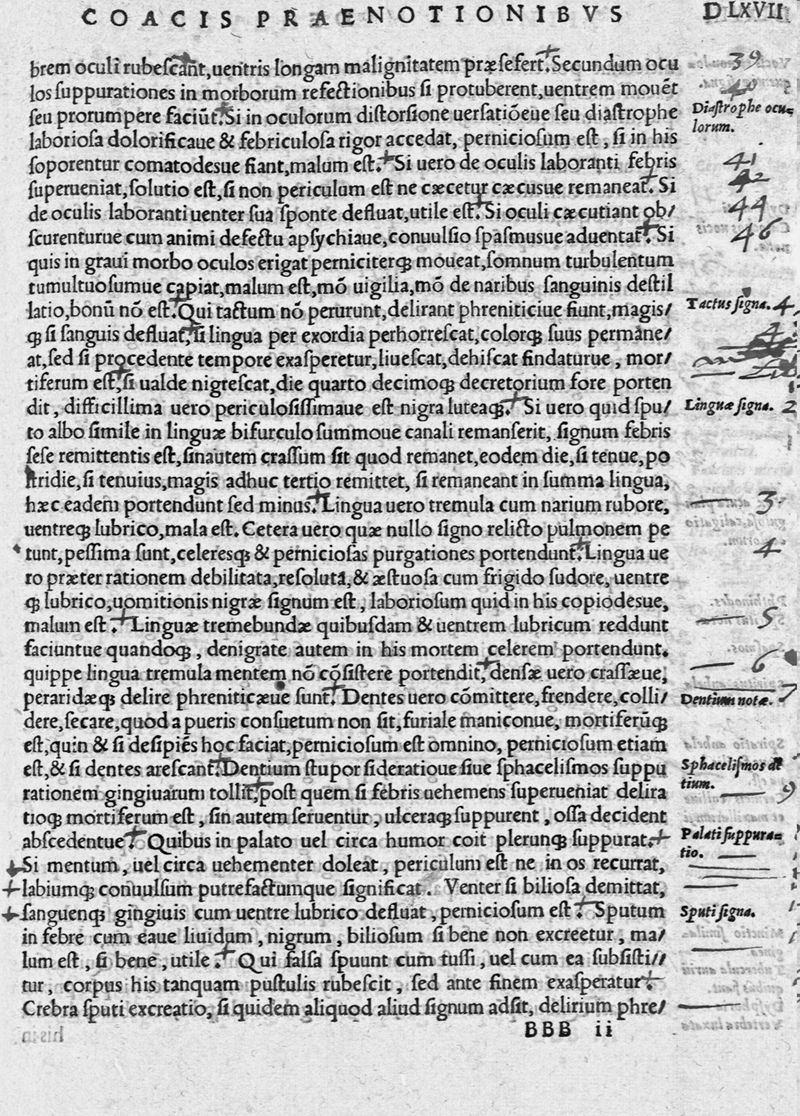 COACIS PRAENOTIONIBVS DLXVII
brem oculi rubeſcant, uentris longam malignitatem præ ſefert. Secundum ocu
los ſuppurationes in morborum refectionibus ſi protuberent, uentrem mouēt
ſeu prorumpere faciūt. Si in oculorum diſtorſione uerſatiōeue ſeu diaſtrophe
Diaſtrophe ocu-
lorum.
laborioſa dolorificaue & febriculoſa rigor accedat, pernicioſum eſt, ſi in his
ſoporentur comatodesue fiant, malum eſt. Si uero de oculis laboranti febris
ſuperueniat, ſolutio eſt, ſi non periculum eſt ne cæcetur cæcusue remaneat. Si
de oculis laboranti uenter ſua ſponte defluat, utile eſt. Si oculi cæcutiant ob/
ſcurenturue cum animi defectu apſychiaue, conuulſio ſpaſmusue aduentat. Si
quis in graui morbo oculos erigat perniciterq́; moueat, ſomnum turbulentum
tumultuoſumue capiat, malum eſt, mō uigilia, mō de naribus ſanguinis deſtil
latio, bonū nō eſt. Qui tactum nō perurunt, delirant phreniticiue fiunt, magis/
Tactus ſigna.
q́; ſi ſanguis defluat. ſi lingua per exordia perhorreſcat, colorq́; ſuus permane/
at, ſed ſi procedente tempore exaſperetur, liueſcat, dehiſcat findaturue, mor/
tiferum eſt. ſi ualde nigreſcat, die quarto decimoq́; decretorium fore porten
dit, difficillima uero periculoſiſſimaue eſt nigra luteaq́;. Si uero quid ſpu/
Linguæ ſigna.
to albo ſimile in linguæ bifurculo ſummoue canali remanſerit, ſignum febris
ſeſe remittentis eſt, ſinautem craſſum ſit quod remanet, eodem die, ſi tenue, po
ſtridie, ſi tenuius, magis adhuc tertio remittet, ſi remaneant in ſumma lingua,
hæc eadem portendunt ſed minus. Lingua uero tremula cum narium rubore,
3
uentreq́; lubrico, mala eſt. Cetera uero quæ nullo ſigno relicto pulmonem pe
tunt, peſſima ſunt, celeresq́; & pernicioſas purgationes portendunt. Lingua ue
4
ro præter rationem debilitata, reſoluta, & æſtuoſa cum frigido ſudore, uentre
q́; lubrico, uomitionis nigræ ſignum eſt, laborioſum quid in his copiodesue,
malum eſt. Linguæ tremebundæ quibuſdam & uentrem lubricum reddunt
5
faciuntue quandoq́;, denigrate autem in his mortem celerem portendunt.
quippe lingua tremula mentem nō cōſiſtere portendit, denſæ uero craſſæue,
6
peraridæq́; delire phreniticæue ſunt. Dentes uero cōmittere, frendere, colli/
Dentium notæ. 7
dere, ſecare, quod a pueris conſuetum non ſit, furiale maniconue, mortiferūq́;
eſt, quin & ſi deſipiēs hoc faciat, pernicioſum eſt omnino, pernicioſum etiam
eſt, & ſi dentes areſcant. Dentium ſtupor ſideratioue ſiue ſphaceliſmos ſuppu
Sphaceliſmos dē
tium.
rationem gingiuarum tollit, poſt quem ſi febris uehemens ſuperueniat delira
9
tioq́; mortiferum eſt, ſin autem ſeruentur, ulceraq́; ſuppurent, oſſa decident
abſcedentue. Quibus in palato uel circa humor coit plerunq́; ſuppurat.
Palati ſuppura-
tio.
Si mentum, uel circa uehementer doleat, periculum eſt ne in os recurrat,
labiumq́; conuulſum putrefactumque ſignificat. Venter ſi bilioſa demittat,
ſanguenq́; gingiuis cum uentre lubrico defluat, pernicioſum eſt. Sputum
Sputi ſigna.
in febre cum eaue liuidum, nigrum, bilioſum ſi bene non excreetur, ma/
lum eſt, ſi bene, utile. Qui ſalſa ſpuunt cum tuſſi, uel cum ea ſubſiſti//
tur, corpus his tanquam puſtulis rubeſcit, ſed ante finem exaſperatur.
Crebra ſputi excreatio, ſi quidem aliquod aliud ſignum adſit, delirium phre/
BBB ii